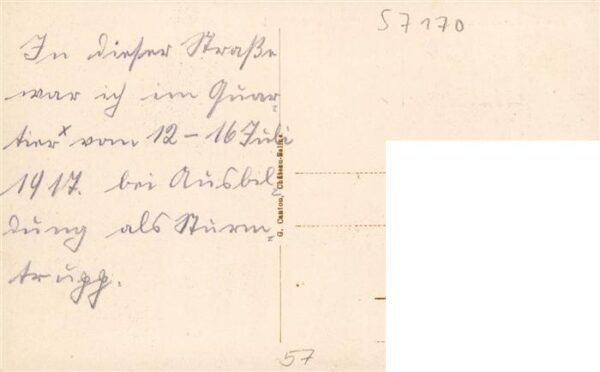 In dieser Straße
war ich im Quar-
tier x vom 12 – 16 Juli
1917. bei Ausbil-
dung als Sturm-
trupp.
S 7170
G. Canton, Château-Salins
57